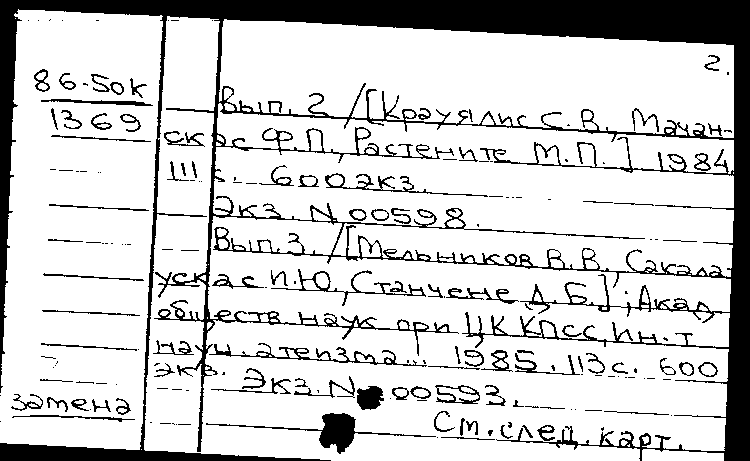 2.
86-50к
1369
Вып. 2 /[Крауялис С.В., Мачан-
скас Ф.П., Растените М.П.] 1984.
111 с. 600 экз.
Экз. N 00598.
Вып. 3. /[Мельников В.В., Сакала-
ускас П.Ю., Станчене Д.Б.]; Акад.
обществ. наук при ЦК КПСС, Ин-т
науч. атеизма... 1985. 113 с. 600
экз.
Экз. N 00593.
замена
См. след. карт.